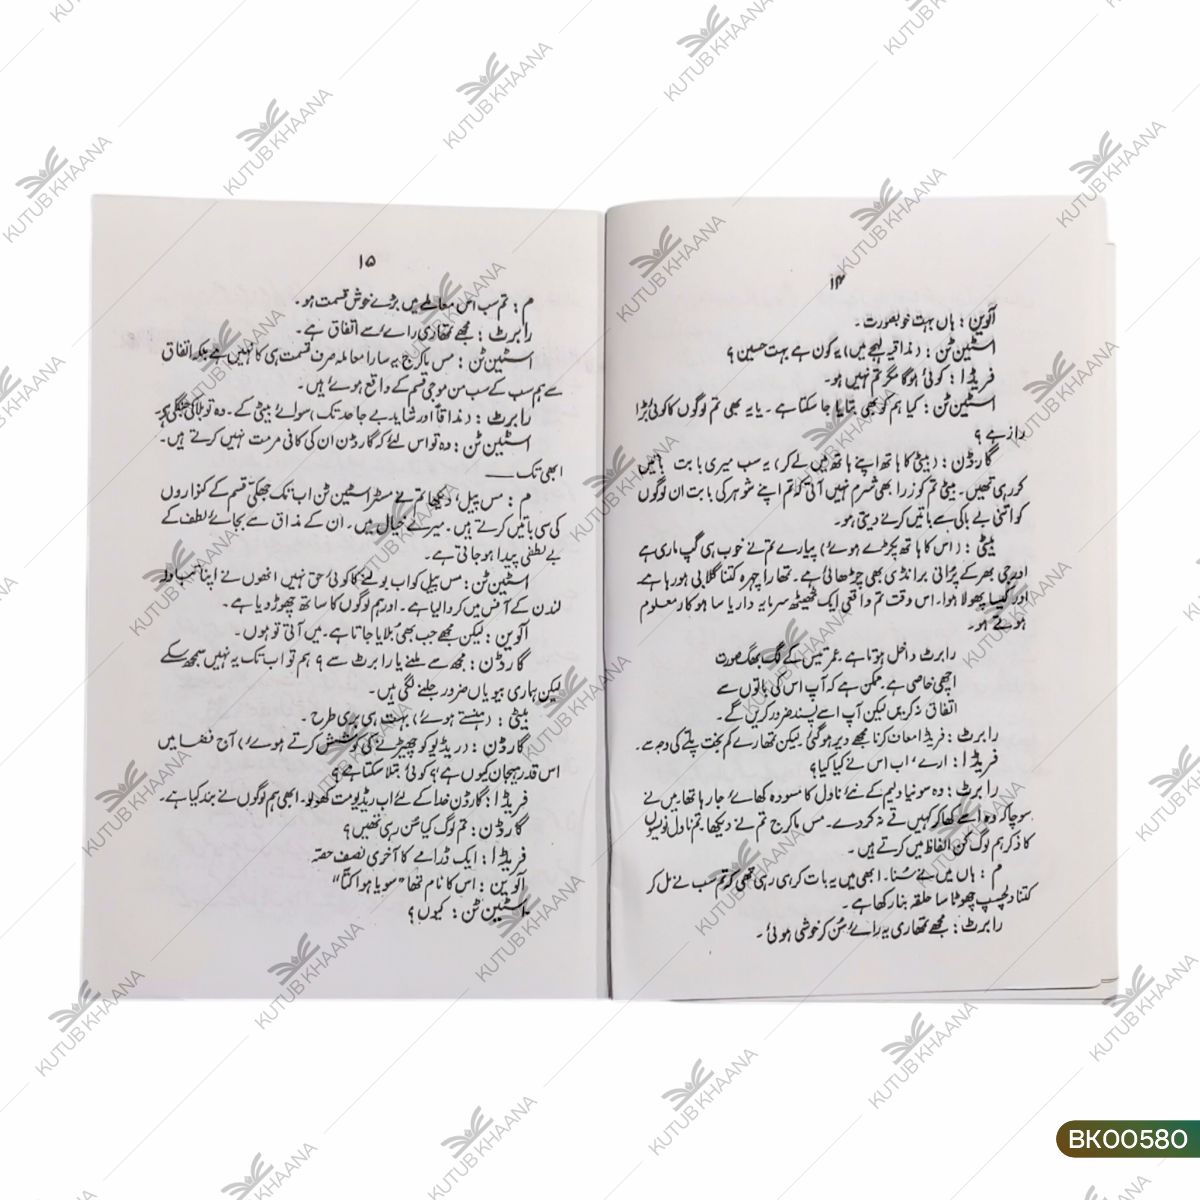 ۱۴
آلوین : ہاں بہت خوبصورت ۔
اسٹین ٹن : (مذاقیہ لہجے میں) یہ کون ہے بہت حسین ؟
فریڈا : کوئی ہوگا مگر تم نہیں ہو۔
اسٹین ٹن : کیا ہم کو بھی بتایا جا سکتا ہے ۔ یا یہ بھی تم لوگوں کا کوئی بڑا
راز ہے ؟
گارڈن : (بیٹی کا ہاتھ اپنے ہاتھ میں لے کر) یہ سب میری بابت باتیں
کر رہی تھیں۔ بیٹی تم کو ذرا بھی شرم نہیں آتی کہ تم اپنے شوہر کی بابت ان لوگوں
کو اتنی بے باکی سے باتیں کرنے دیتی ہو۔
بیٹی : (اس کا ہاتھ پکڑے ہوئے) پیارے تم نے خوب ہی گپ ماری ہے
اور جی بھر کے پرانی برانڈی بھی چڑھائی ہے۔ تمھارا چہرہ کتنا گلابی ہو رہا ہے۔
اور کیسا پھولا ہوا۔ اس وقت تم واقعی ایک ٹھیٹھ سرمایہ دار یا ساہوکار معلوم
ہوتے ہو۔
رابرٹ داخل ہوتا ہے۔ عمر تیس کے لگ بھگ صورت
اچھی خاصی ہے۔ ممکن ہے کہ آپ اس کی باتوں سے
اتفاق نہ کریں لیکن آپ اسے پسند ضرور کریں گے ۔
رابرٹ : فریڈا معاف کرنا مجھے دیر ہو گئی۔ لیکن تمھارے کم بخت پلے کی وجہ سے۔
فریڈا : ارے، اب اس نے کیا کیا؟
رابرٹ : وہ سونیا ولیم کے نئے ناول کا مسودہ کھائے جا رہا تھا۔ میں نے
سوچا کہ وہ اسے کھا کر کہیں قے نہ کر دے۔ مس ماکرج تم نے دیکھا ہم ناول نویسوں
کا ذکر ہم لوگ کن الفاظ میں کرتے ہیں ۔
م : ہاں میں نے سُنا۔ ابھی میں یہ بات کر ہی رہی تھی کہ تم سب نے مل کر
کتنا دلچسپ چھوٹا سا حلقہ بنا رکھا ہے ۔
رابرٹ : مجھے تمھاری یہ رائے سُن کر خوشی ہوئی ۔
۱۵
م : تم سب اس معاملے میں بڑے خوش قسمت ہو ۔
رابرٹ : مجھے تمھاری رائے سے اتفاق ہے ۔
اسٹین ٹن : مس ماکرج یہ سارا معاملہ صرف قسمت ہی کا نہیں ہے بلکہ اتفاق
سے ہم سب کے سب من موجی قسم کے واقع ہوئے ہیں ۔
رابرٹ : (مذاقاً اور شاید بے جا حد تک) سوائے بیٹی کے۔ وہ تو بلا کی جنگلی ہے
اسٹین ٹن : وہ تو اس لئے کہ گارڈن ان کی کافی مرمت نہیں کرتے ہیں۔
ابھی تک ــــــ
م : مس پیل، دیکھا تم نے مسٹر اسٹین ٹن اب تک جھکی قسم کے کنواروں
کی سی باتیں کرتے ہیں ۔ میرے خیال میں ۔ ان کے مذاق سے بجائے لطف کے
بے لطفی پیدا ہو جاتی ہے ۔
اسٹین ٹن: مس پیل کو اب بولنے کا کوئی حق نہیں انھوں نے اپنا تبادلہ
لندن کے آفس میں کروا لیا ہے ۔ اور ہم لوگوں کا ساتھ چھوڑ دیا ہے ۔
آلوین : لیکن مجھے جب بھی بُلایا جاتا ہے ۔ میں آتی تو ہوں ۔
گارڈن : مجھ سے ملنے یا رابرٹ سے ؟ ہم تو اب تک یہ نہیں سمجھ سکے
لیکن ہماری بیویاں ضرور جلنے لگی ہیں۔
بیٹی : (ہنستے ہوئے) بہت ہی بری طرح ۔
گارڈن : (ریڈیو کو چھیڑنے کی کوشش کرتے ہوئے) آج فضا میں
اس قدر ہیجان کیوں ہے ؟ کوئی بتلا سکتا ہے ؟
فریڈا : گارڈن خدا کے لئے اب ریڈیو مت کھولو۔ ابھی ہم لوگوں نے بند کیا ہے۔
گارڈن : تم لوگ کیا سُن رہی تھیں ؟
فریڈا : ایک ڈرامے کا آخری نصف حصّہ
آلوین : اس کا نام تھا ”سویا ہوا کتّا“
اسٹین ٹن : کیوں ؟
KUTUB KHAANA
BK00580